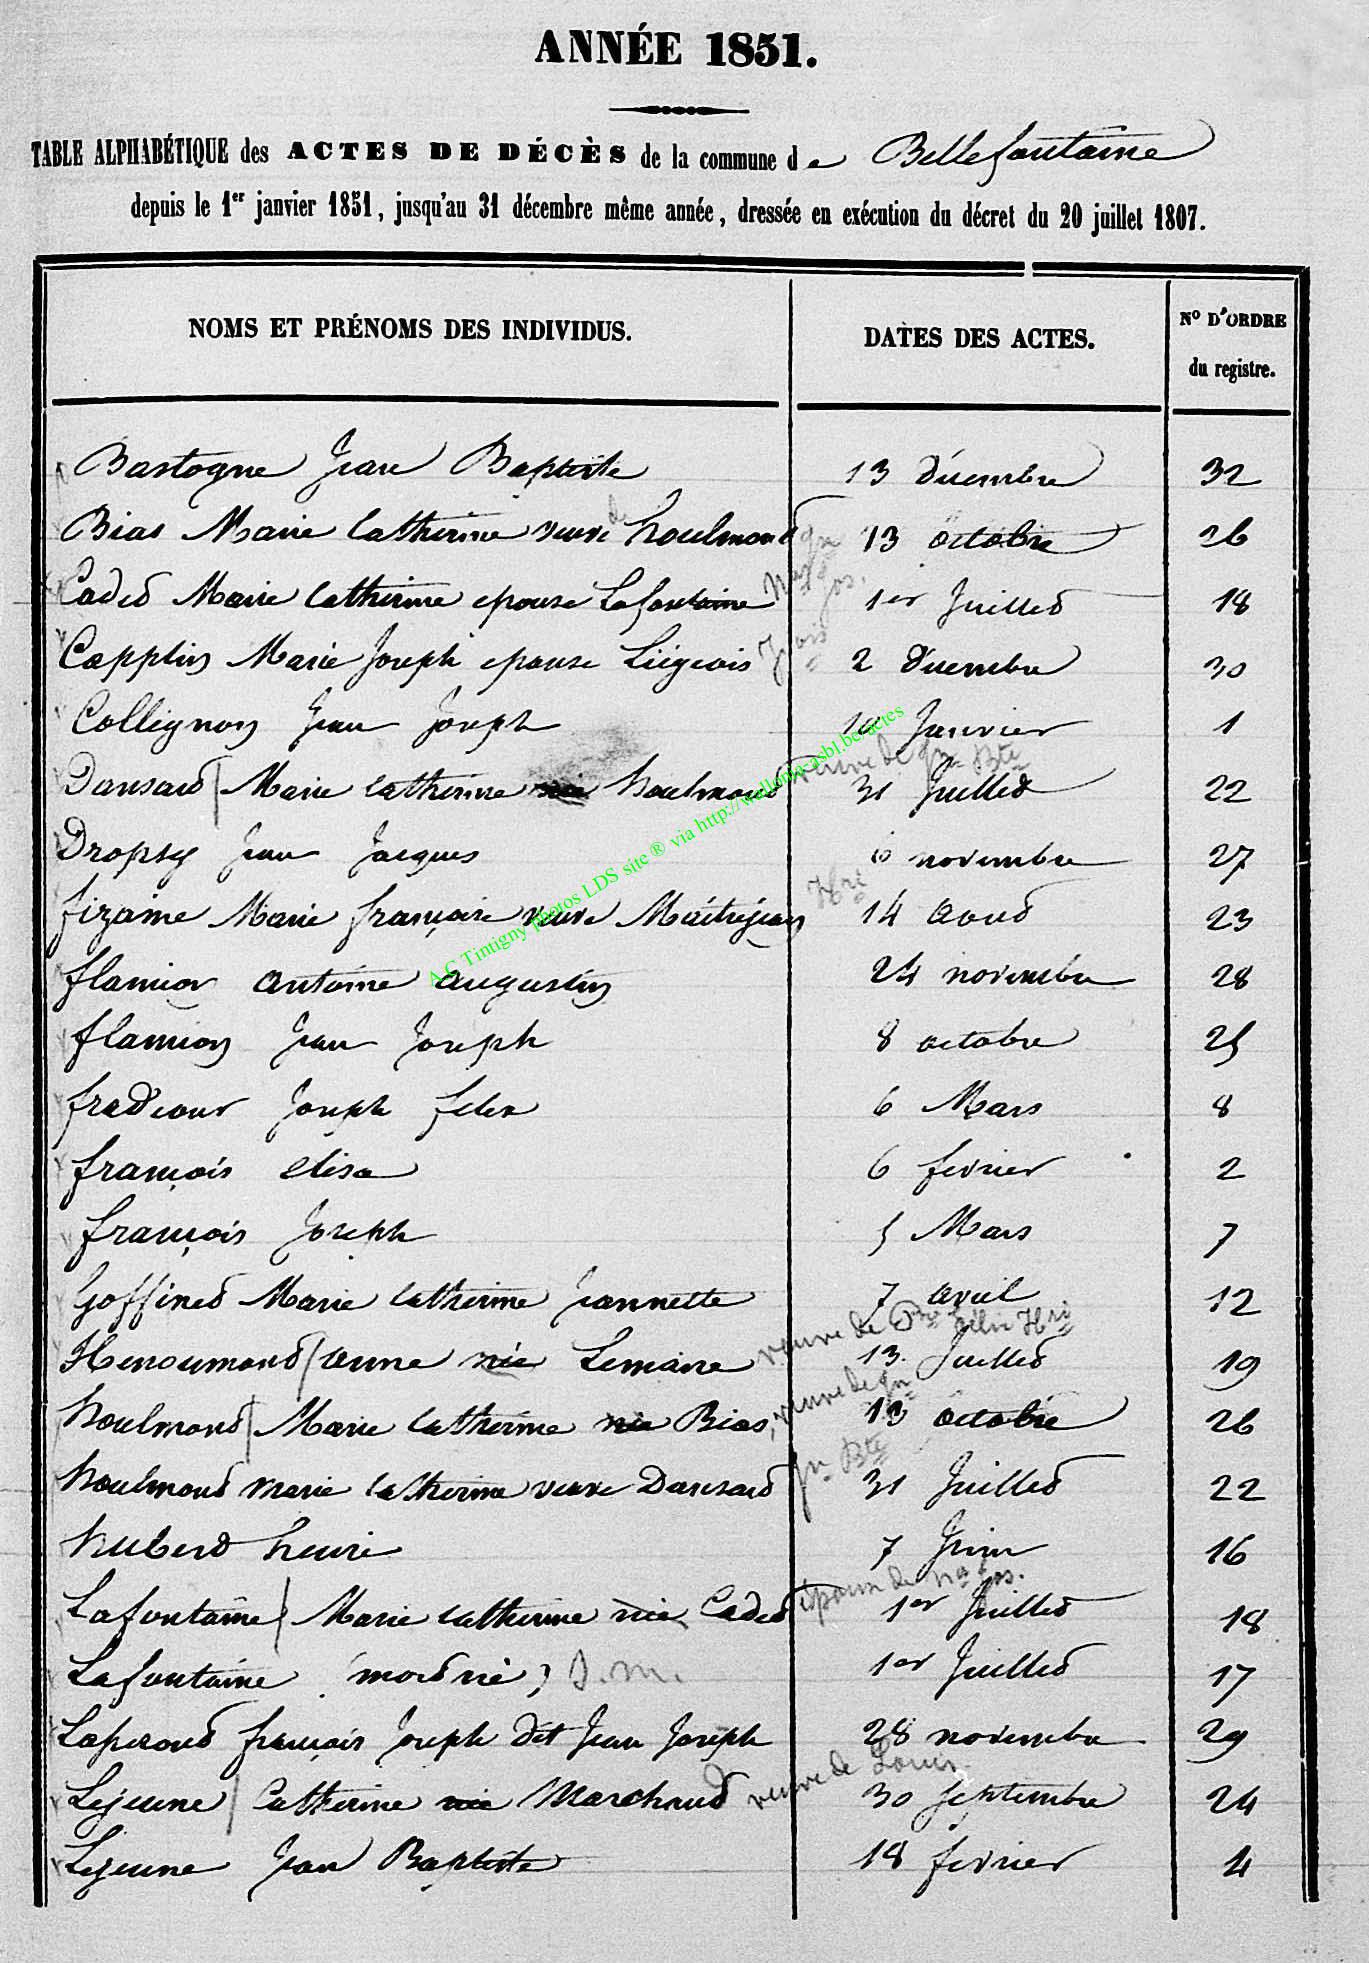 ANNÉE 1851.
TABLE ALPHABÉTIQUE des ACTES DE DÉCÈS de la commune de Bellefontaine
depuis le 1er janvier 1851, jusqu'au 31 décembre même année, dressée en exécution du décret du 20 juillet 1807.
NOMS ET PRÉNOMS DES INDIVIDUS. DATES DES ACTES. No D'ORDRE
du registre.
Bastogne Jean Baptiste 13 décembre 32
Bias Marie Catherine veuve de houlmond Jn 13 octobre 26
Cadet Marie Catherine epouse Lafontaine 1er Juillet 18
Capplin Marie Joseph epouse Liégeois 2 décembre 30
Collignon Jean Joseph Janvier 1
veuve de Jn Bte
Dansard / Marie Catherine née houlmond 31 Juillet 22
Dropsy Jean Jacques novembre 27
fizaine Marie françoise veuve Maitrejean Hri 14 aout 23
flamion antoine augustin 24 novembre 28
flamion Jean Joseph 8 octobre 25
fradcour Joseph felix 6 Mars 8
françois elisa 6 fevrier 2
françois Joseph 5 Mars 7
Goffinet Marie Catherine Jeannette 7 avril 12
Henoumont / anne née Lemaire 13 Juillet 19
houlmond / Marie Catherine née Bias, veuve de Jn 13 octobre 26
houlmond marie Catherine veuve Dansard Jn Bte 31 Juillet 22
hubert henri 7 Juin 16
Lafontaine / Marie Catherine née Cadet 1er Juillet 18
Lafontaine (mort né) S.M. 1er Juillet 17
Laperout françois Joseph dit Jean Joseph 28 novembre 29
Lejeune / Catherine née Marchand veuve de Louis 30 septembre 24
Lejeune Jean Baptiste 18 fevrier 4
A.C Tintigny photos LDS site ® via http://wallonia-asbl.be/actes